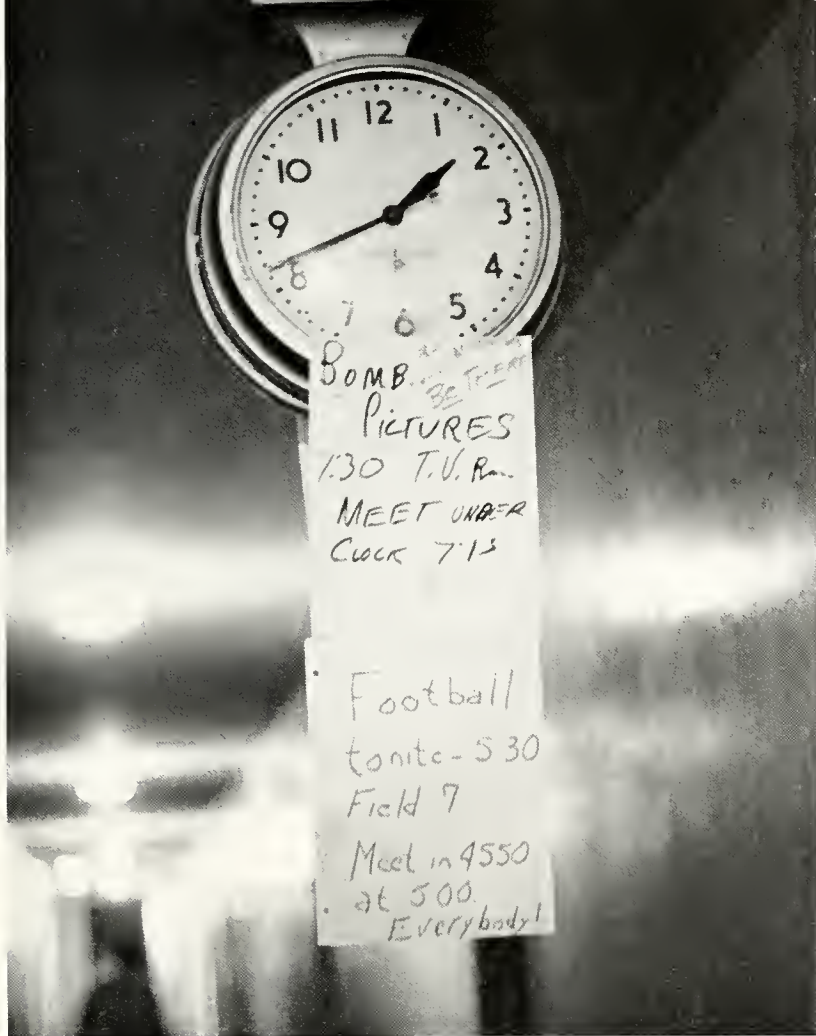 12
11 1
10 2
9 3
8 4
7 6 5
BOMB
BE THERE
PICTURES
1:30 T.V. Rm.
MEET UNDER
CLOCK 7:15
Football
tonite - 5 30
Field 7
Meet in 4550
at 5 00.
Everybody!